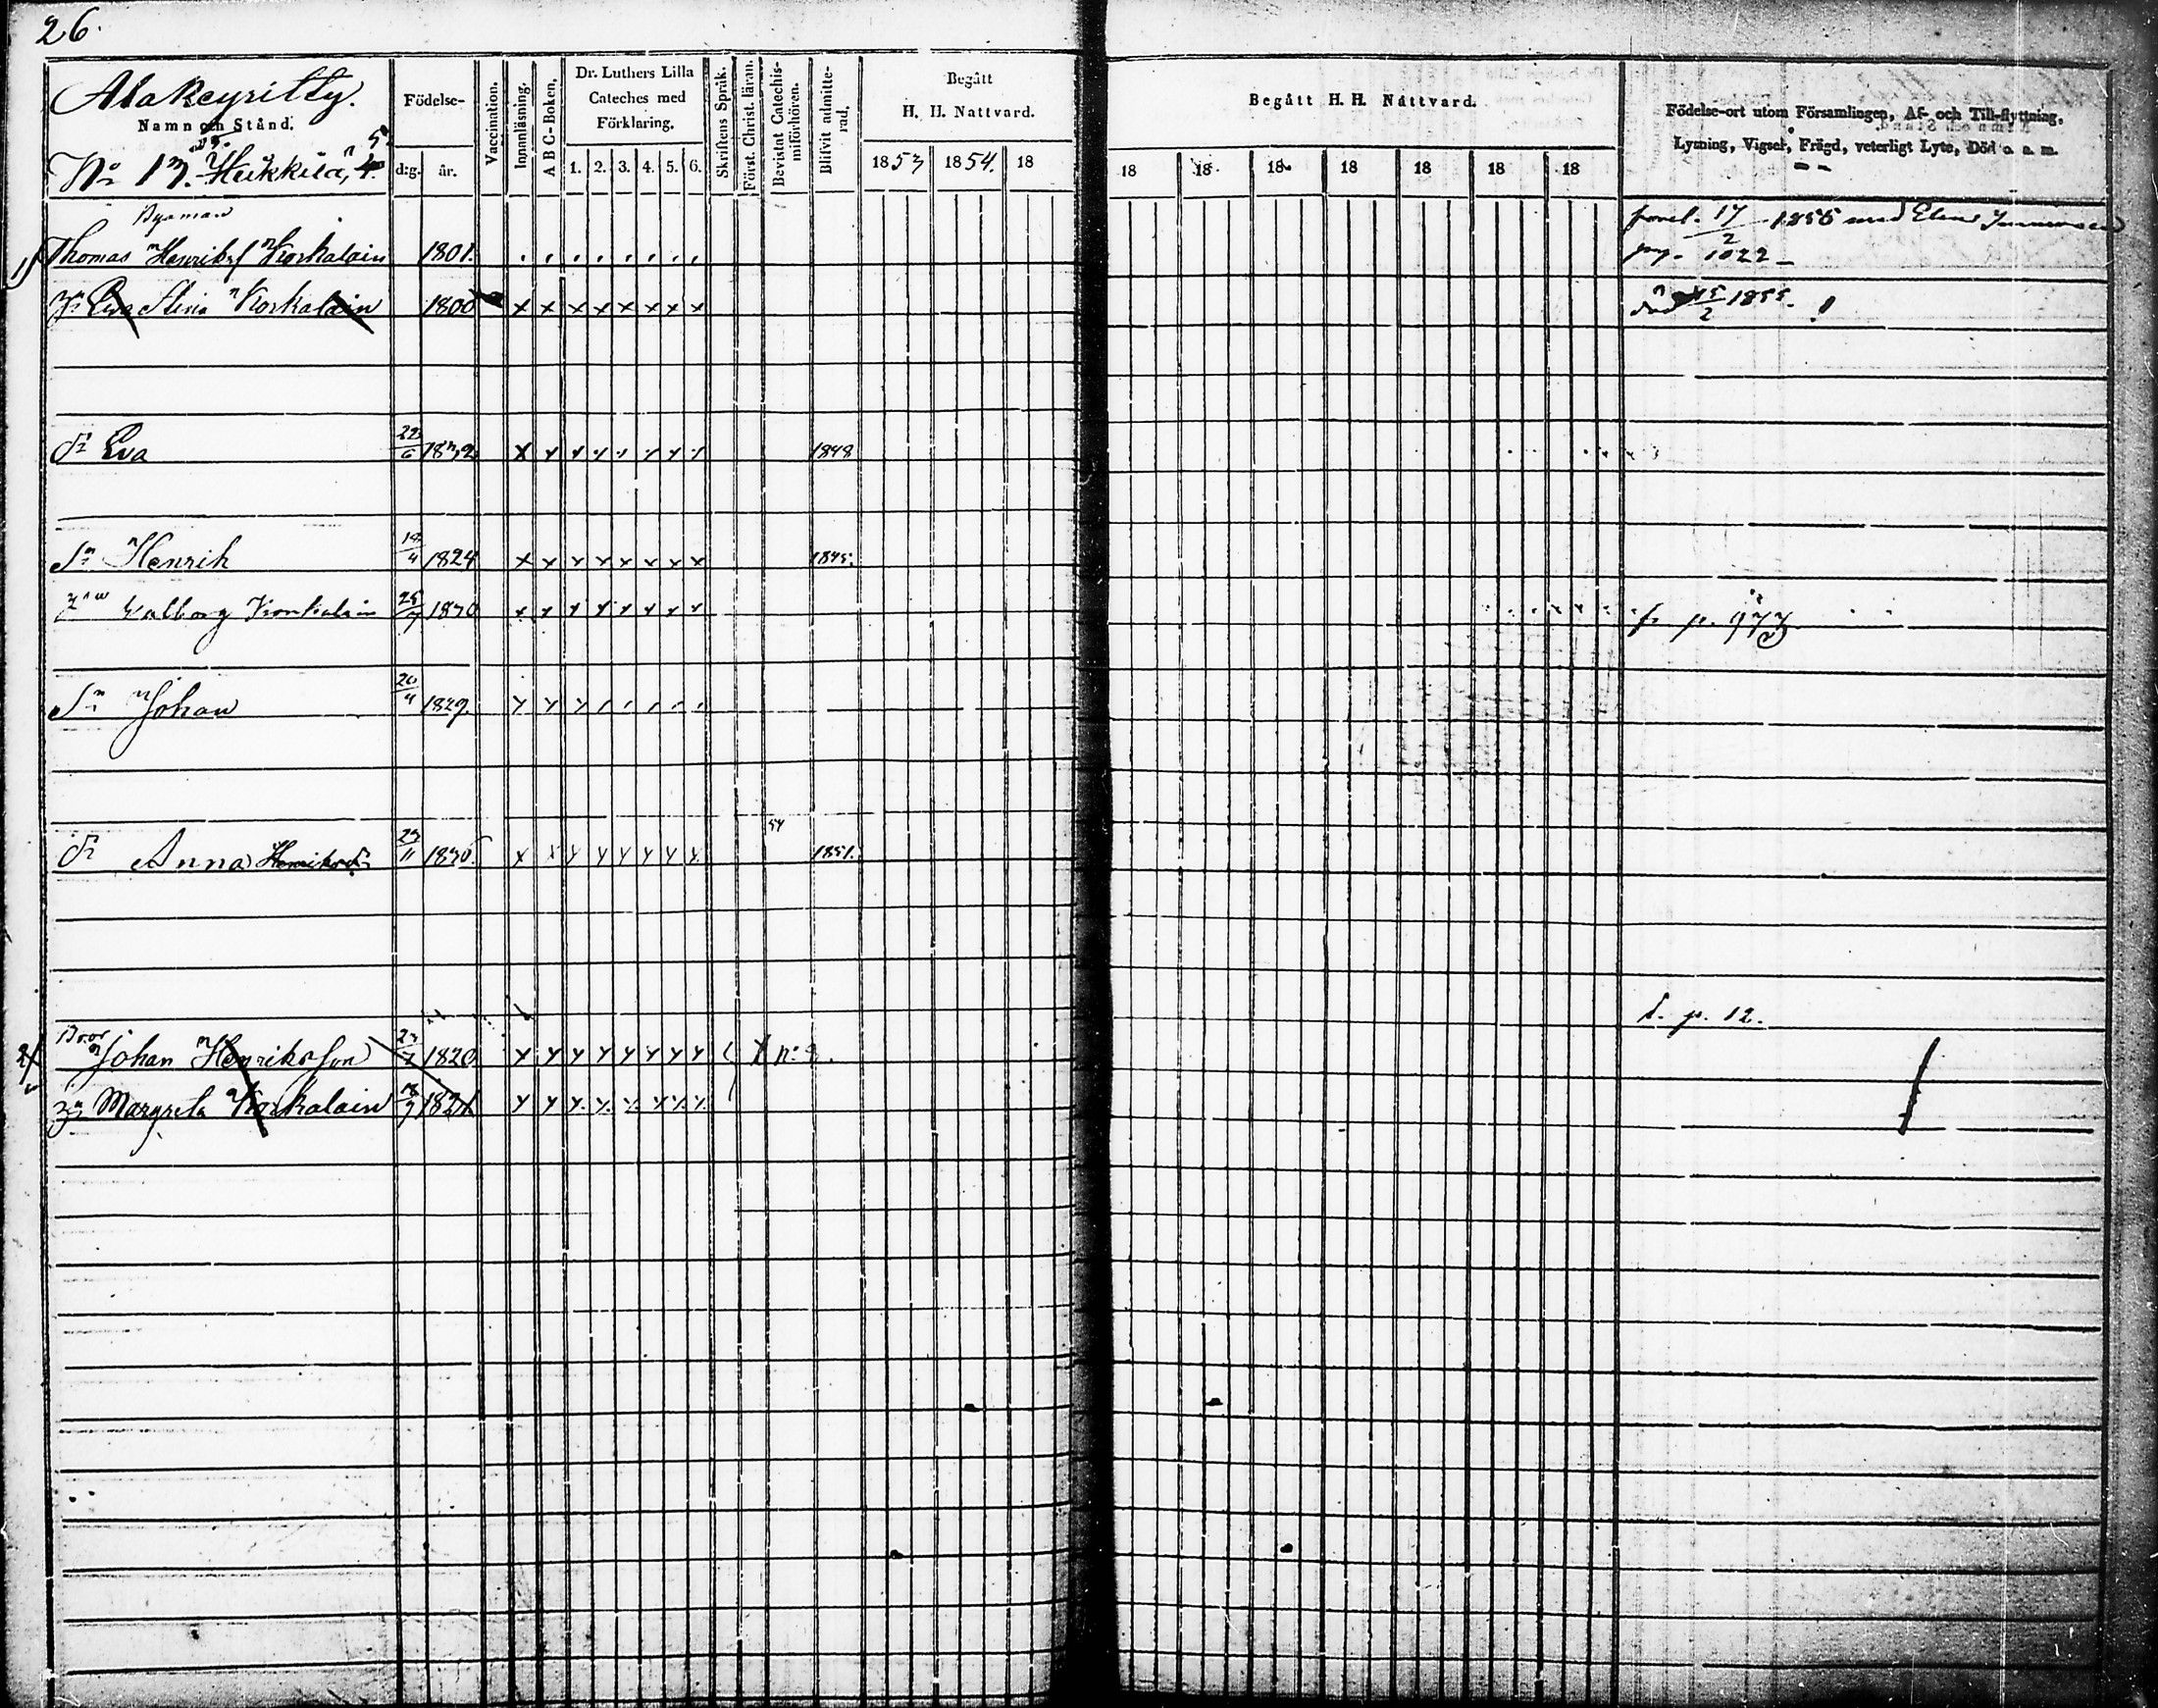 26.
Alakeyritty.
Namn och Stånd.
No 13. Heikkilä, 5
Födelse-
d:g. år.
Vaccination.
Innanläsning.
A B C-Boken.
Dr. Luthers Lilla
Cateches med
Förklaring.
1. 2. 3. 4. 5. 6.
Skriftens Språk.
Först. Christ. läran.
Bevistat Catechis-
miförhören.
Blifvit admitte-
rad.
Begått
H. H. Nattvard.
1853 1854. 18
Begått H. H. Nattvard.
18 18 18 18 18 18 18
Födelse-ort utom Församlingen, Af- och Till-flyttning,
Lysning, Vigsel, Frägd, veterligt Lyte, Död o. s. m.
1855 med Elin
1/ Thomas Henriks Korkalain 1801.
pag. 1022
Hu Eva Stina Korkalain 1800 x x x x x x x x
död 15/2 1855.
dr Eva 22/6 1832 1848
Sn Henrik 18/4 1824 x 1845.
Walborg Korkalain 25/9 1830
p. 973
Sn Johan 20/4 1829.
54
dr Anna Henriksdr 23/11 1836. 1851.
f. p. 12.
Bror
2/ Johan Henriksson 23/7 1820
Margreta Korkalain 1821